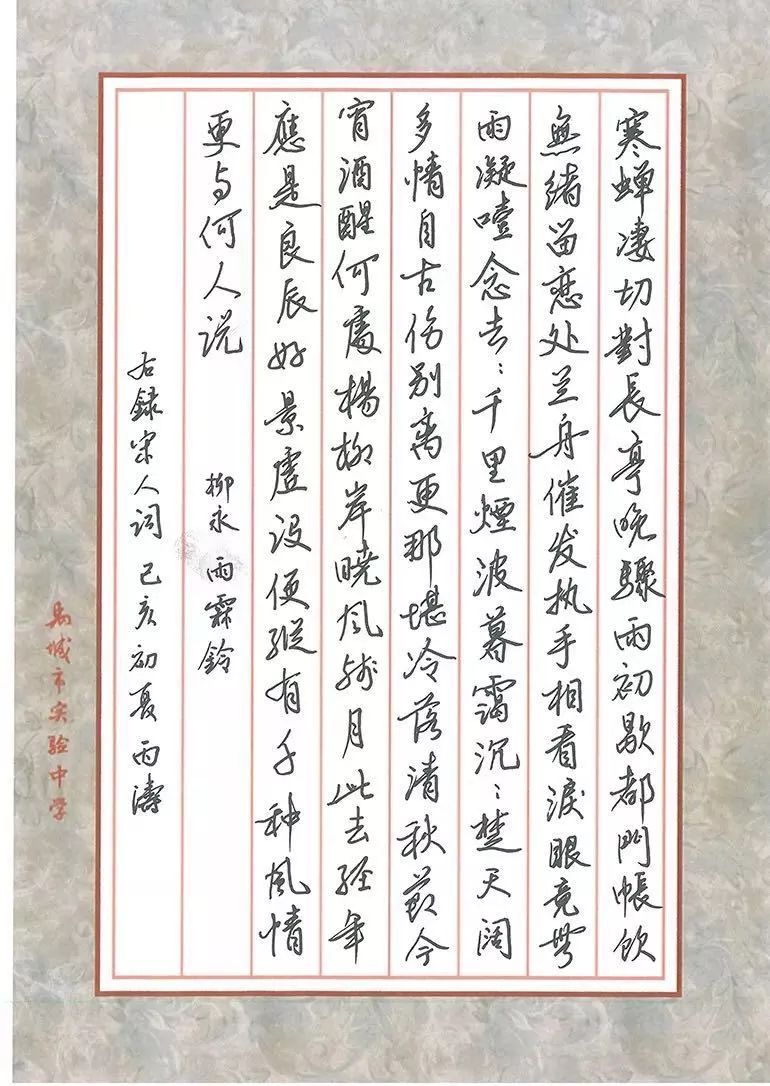 寒蝉凄切對長亭晚驟雨初歇都門帳飲
無緒留恋处兰舟催发执手相看淚眼竟無
語凝噎念去〻千里煙波暮靄沉〻楚天阔
多情自古伤别离更那堪冷落清秋節今
宵酒醒何處楊柳岸曉风残月此去经年
應是良辰好景虚设便縱有千种风情
更与何人说
柳永 雨霖鈴
右録宋人词 己亥初夏雨濤
禹城市实验中学